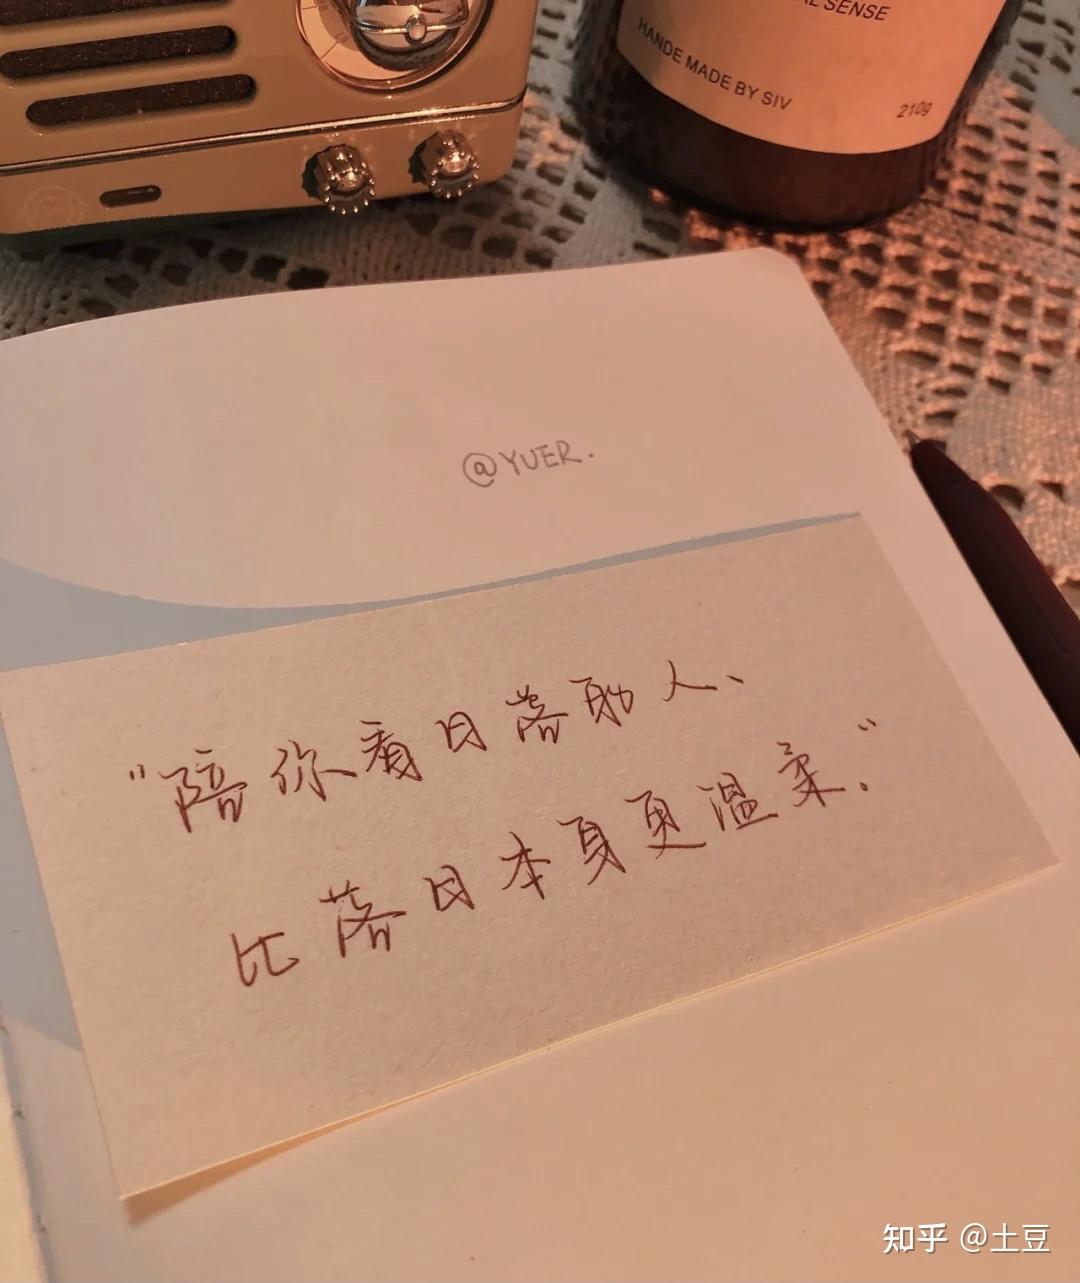 AL SENSE
HANDE MADE BY SIV
210g
@YUER.
"陪你看日落的人、
比落日本身更温柔."
知乎 @土豆